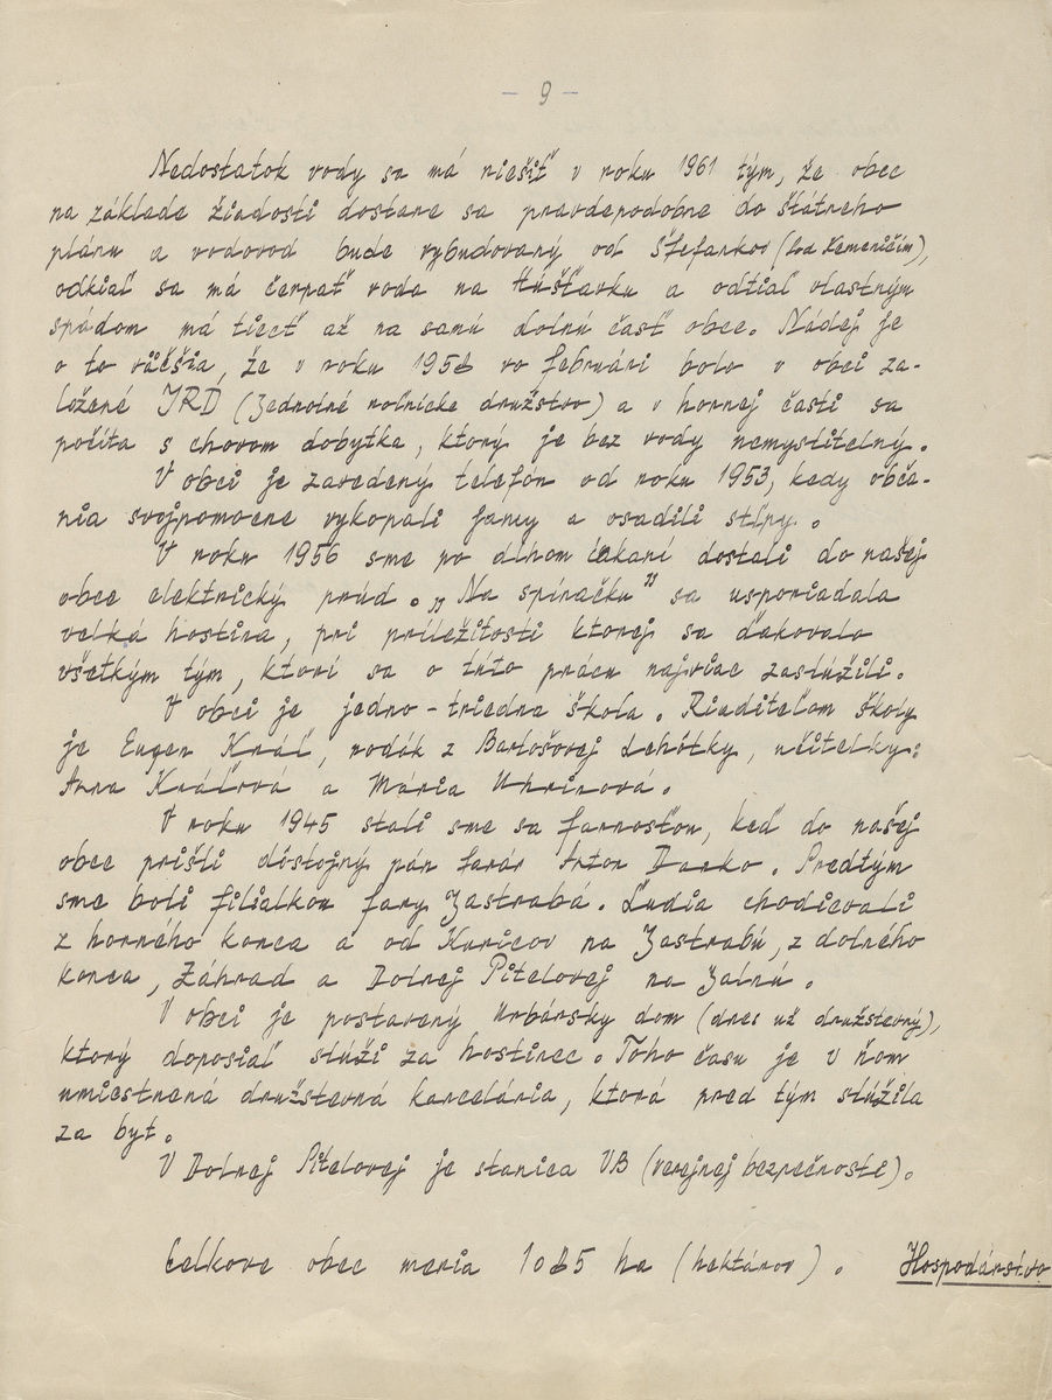 - 9 -
Nedostatok vody sa má riešiť v roku 1961 tým, že obec
na základe žiadosti dostane sa pravdepodobne do štátneho
plánu a vodovod bude vybudovaný od Štefankov
odkiaľ sa má čerpať voda na Húšťavku a odtiaľ vlastným
spádom má tiecť až na samú dolnú časť obce. Nádej je
o to väčšia, že v roku 1958 vo februári bolo v obci za-
ložené JRD (Jednotné roľnícke družstvo) a v hornej časti sa
počíta s chovom dobytka, ktorý je bez vody nemysliteľný.
V obci je zavedený telefón od roku 1953, kedy obča-
nia svojpomocne vykopali jamy a osadili stĺpy.
V roku 1956 sme po dlhom čakaní dostali do našej
obce elektrický prúd. „Na spíračku" sa usporiadala
velká hostina, pri príležitosti ktorej sa ďakovalo
všetkým tým, ktorí sa o túto prácu najviac zaslúžili.
V obci je jedno-triedna škola. Riaditeľom školy
je Eugen Kráľ, rodák z Bartošovej Lehôtky, učitelky:
Anna Kráľová a Mária Uhrinová.
V roku 1945 stali sme sa farnosťou, keď do našej
obce prišli dôstojný pán farár Anton Danko. Predtým
sme boli filialkou fary Jastrabá. Ľudia chodievali
z horného konca a od Kuricov na Jastrabú, z dolného
konca, Záhrad a Dolnej Pitelovej na Jalnú.
V obci je postavený Urbársky dom (dnes už družstevný),
ktorý doposiaľ slúži za hostinec. Toho času je v ňom
umiestnená družstevná kancelária, ktorá pred tým slúžila
za byt.
V Dolnej Pitelovej je stanica VB (verejnej bezpečnosti).
Celkove obec meria 1085 ha (hektárov). Hospodárstvo